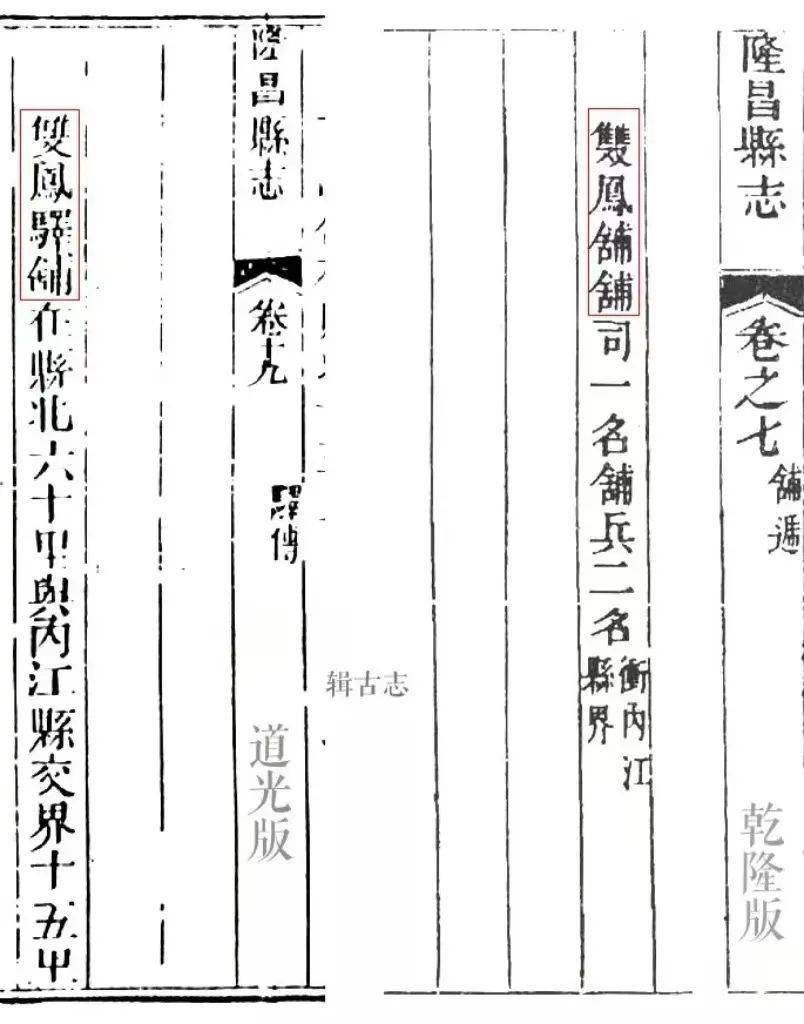 隆昌縣志
卷之七
舖遞
乾隆版
雙鳳舖舖司一名舖兵二名
衝內江
縣界
辑古志
隆昌縣志
卷十九
驛傳
道光版
雙鳳驛舖在縣北六十甲與丙江縣交界十五甲